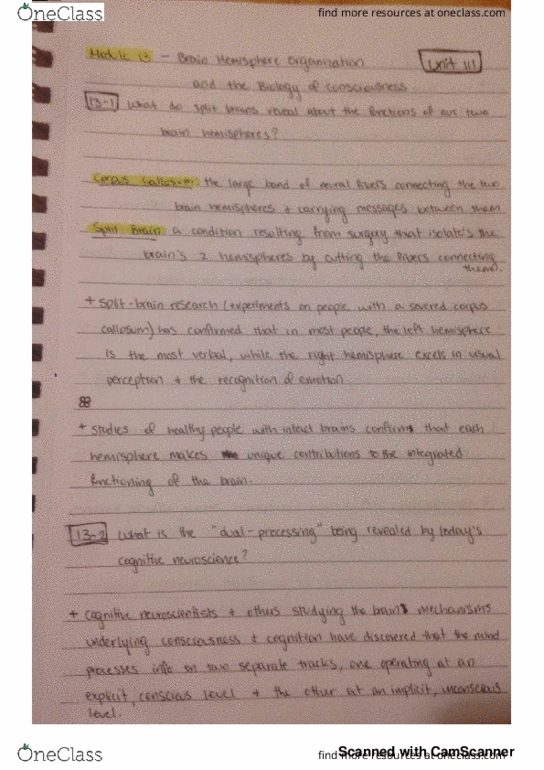 OneClass
find more resources at oneclass.com
Module 13 - Brain Hemisphere Organization
Unit III
and the Biology of consciousness
13-1 What do split brains reveal about the functions of our two
brain hemispheres?
Corpus Callosum: the large band of neural fibers connecting the two
brain hemispheres + carrying messages between them
Split Brain: a condition resulting from surgery that isolates the
brain's 2 hemispheres by cutting the fibers connecting
them.
+ split-brain research (experiments on people with a severed corpus
callosum) has confirmed that in most people, the left hemisphere
is the most verbal, while the right hemisphere excels in visual
perception + the recognition of emotion
+ studies of healthy people with intact brains confirm that each
hemisphere makes unique contributions to the integrated
functioning of the brain.
13-2 What is the "dual-processing" being revealed by today's
cognitive neuroscience?
+ cognitive neuroscientists + others studying the brain mechanisms
underlying consciousness + cognition have discovered that the mind
processes info on two separate tracks, one operating at an
explicit, conscious level + the other at an implicit, unconscious
level.
OneClass
find more resources at oneclass.com
Scanned with CamScanner